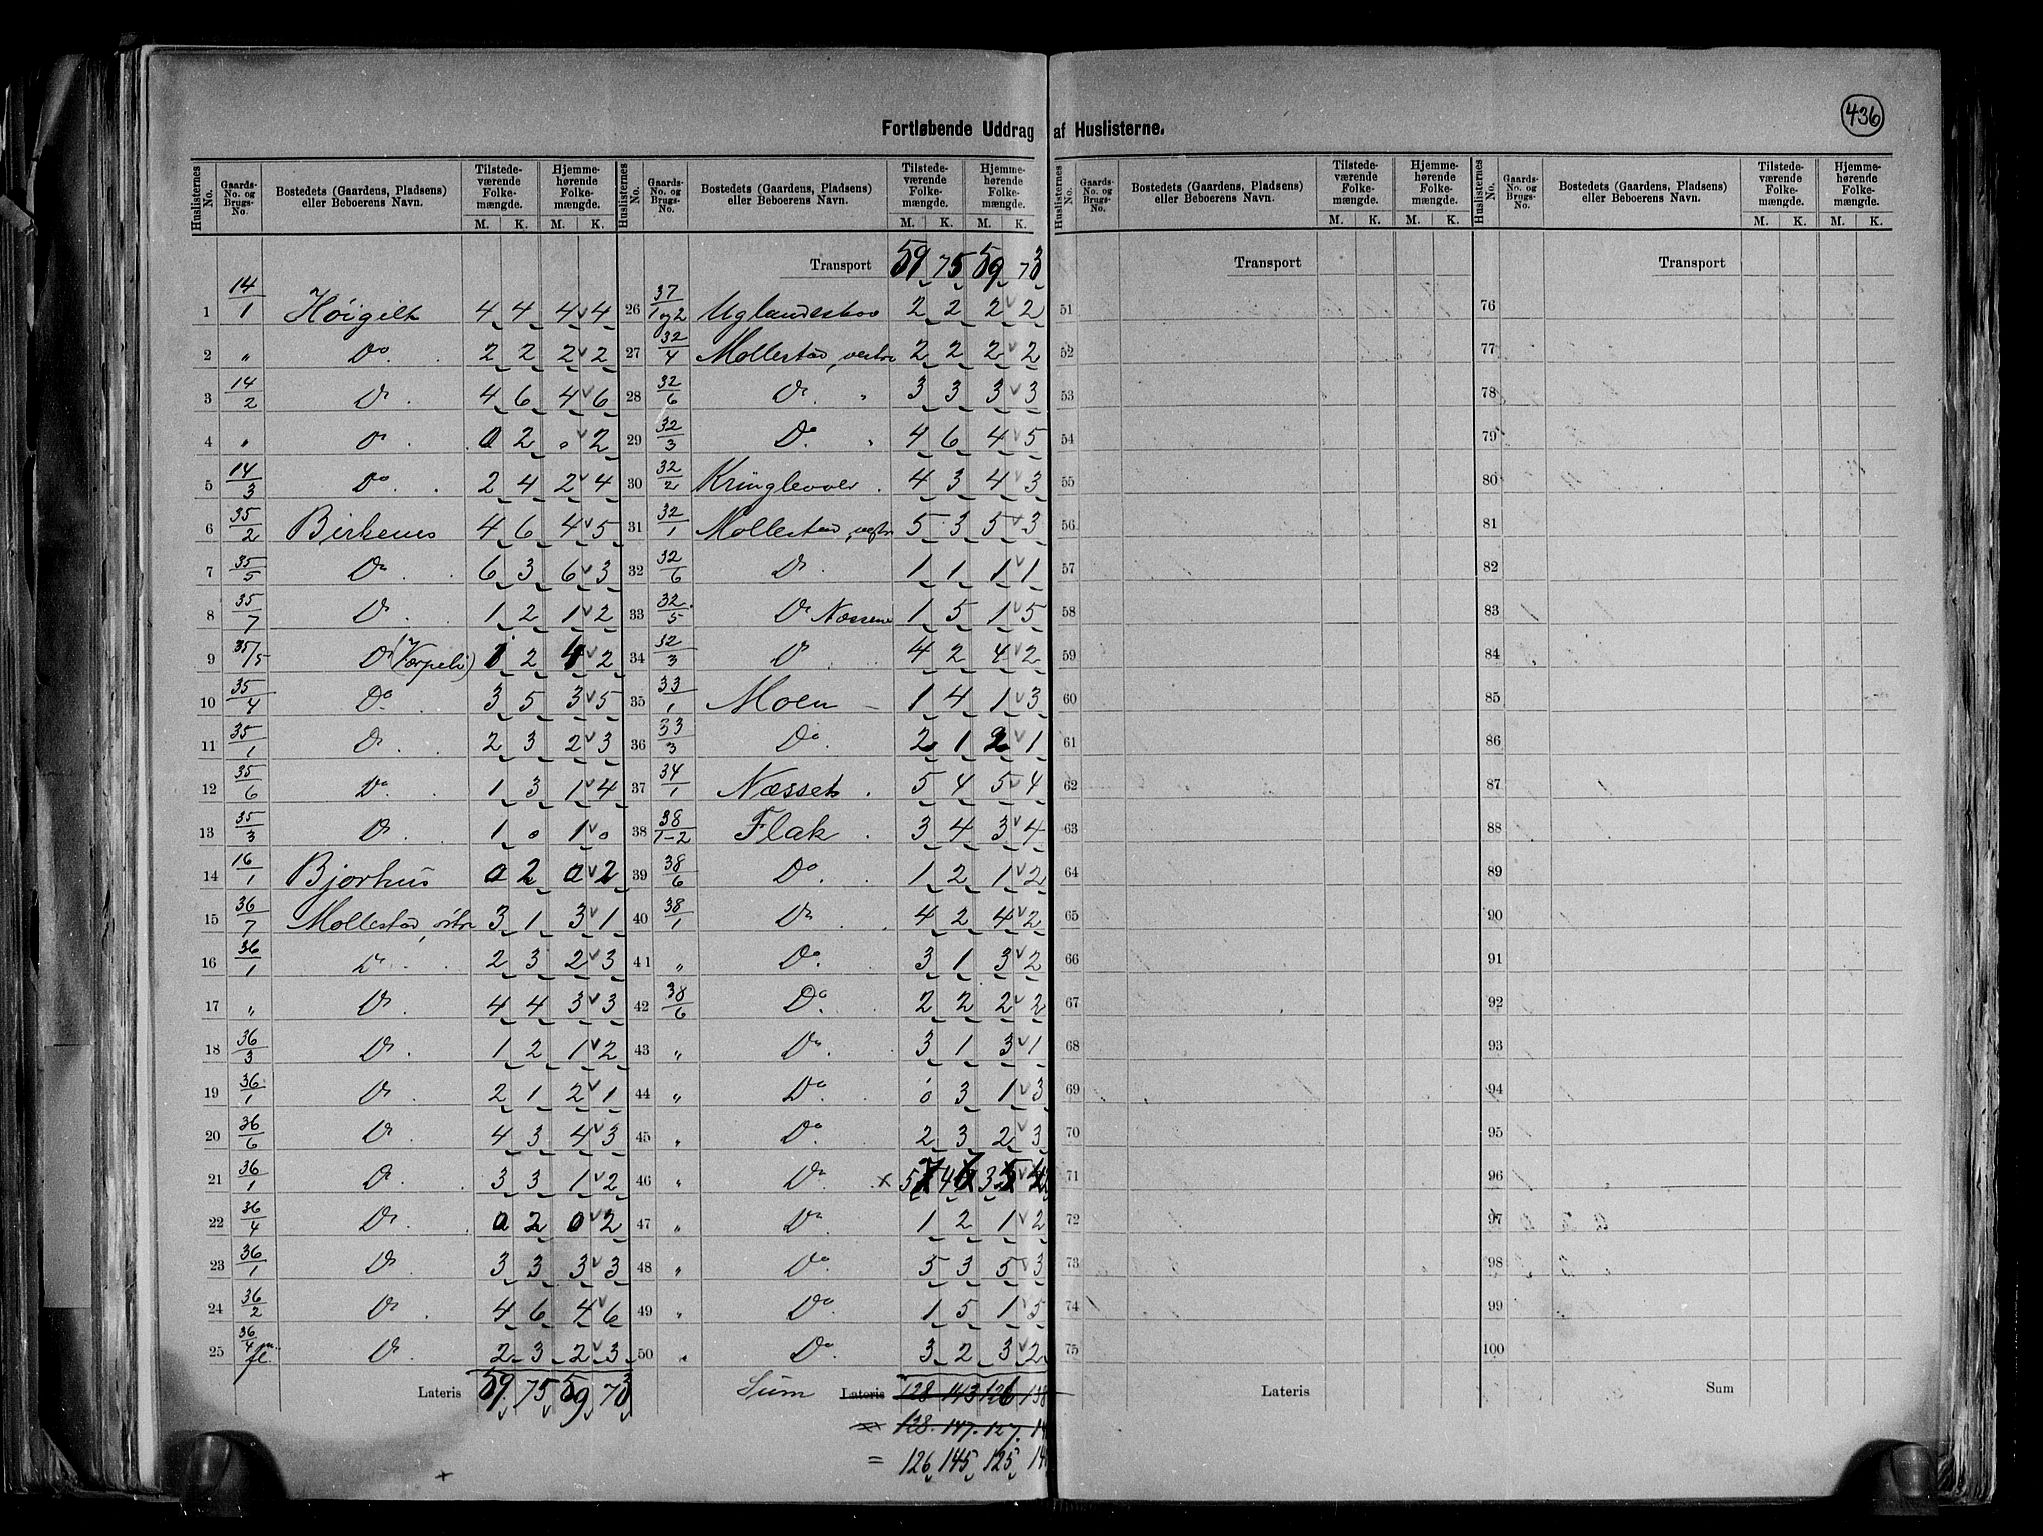 436
Fortløbende Uddrag af Huslisterne.
Huslisternes No. | Gaards-No. og Brugs-No. | Bostedets (Gaardens, Pladsens) eller Beboerens Navn. | Tilstedeværende Folkemængde. M. K. | Hjemmehørende Folkemængde. M. K.
1 14/1 Høigilt 4 4 4 4
2 " Do 2 2 2 2
3 14/2 Do. 4 6 4 6
4 " Do. 0 2 0 2
5 14/3 Do. 2 4 2 4
6 35/2 Birkenes 4 6 4 5
7 35/5 Do. 6 3 6 3
8 35/7 Do. 1 2 1 2
9 35/5 Do (Værpeli) 1 2 1 2
10 35/4 Do. 3 5 3 5
11 35/1 Do. 2 3 2 3
12 35/6 Do. 1 3 1 4
13 35/3 Do. 1 0 1 0
14 16/1 Bjorhus 0 2 0 2
15 36/7 Mollestad, østre 3 1 3 1
16 36/1 Do. 2 3 2 3
17 " Do. 4 4 3 3
18 36/3 Do. 1 2 1 2
19 36/1 Do. 2 1 2 1
20 36/6 Do. 4 3 4 3
21 36/1 Do. 3 3 1 2
22 36/4 Do. 0 2 0 2
23 36/1 Do. 3 3 3 3
24 36/2 Do. 4 6 4 6
25 36/4 m. fl. Do. 2 3 2 3
Lateris 59 75 59 73
Huslisternes No. | Gaards-No. og Brugs-No. | Bostedets (Gaardens, Pladsens) eller Beboerens Navn. | Tilstedeværende Folkemængde. M. K. | Hjemmehørende Folkemængde. M. K.
Transport 59 75 59 73
26 37/1 og 2 Uglandeskov 2 2 2 2
27 32/4 Mollestad, vestre 2 2 2 2
28 32/6 Do. " 3 3 3 3
29 32/3 Do. " 4 6 4 5
30 32/2 Kringlevoler. 4 3 4 3
31 32/1 Mollestad, vestre 5 3 5 3
32 32/6 Do. 1 1 1 1
33 32/5 Do Næssene 1 5 1 5
34 32/3 Do 4 2 4 2
35 33/1 Moen 1 4 1 3
36 33/3 Do. 2 1 2 1
37 34/1 Næsset. 5 4 5 4
38 38/1-2 Flak. 3 4 3 4
39 38/6 Do. 1 2 1 2
40 38/1 Do. 4 2 4 2
41 " Do. 3 1 3 2
42 38/6 Do. 2 2 2 2
43 " Do. 3 1 3 1
44 " Do. 0 3 1 3
45 " Do. 2 3 2 3
46 " Do. x 5 4 3
47 " Do. 1 2 1 2
48 " Do. 5 3 5 3
49 " Do. 1 5 1 5
50 " Do. 3 2 3 2
Sum Lateris 128 143 126 138
128. 147. 127.
= 126 145 125
Huslisternes No. | Gaards-No. og Brugs-No. | Bostedets (Gaardens, Pladsens) eller Beboerens Navn. | Tilstedeværende Folkemængde. M. K. | Hjemmehørende Folkemængde. M. K.
Transport
51
52
53
54
55
56
57
58
59
60
61
62
63
64
65
66
67
68
69
70
71
72
73
74
75
Lateris
Huslisternes No. | Gaards-No. og Brugs-No. | Bostedets (Gaardens, Pladsens) eller Beboerens Navn. | Tilstedeværende Folkemængde. M. K. | Hjemmehørende Folkemængde. M. K.
Transport
76
77
78
79
80
81
82
83
84
85
86
87
88
89
90
91
92
93
94
95
96
97
98
99
100
Sum